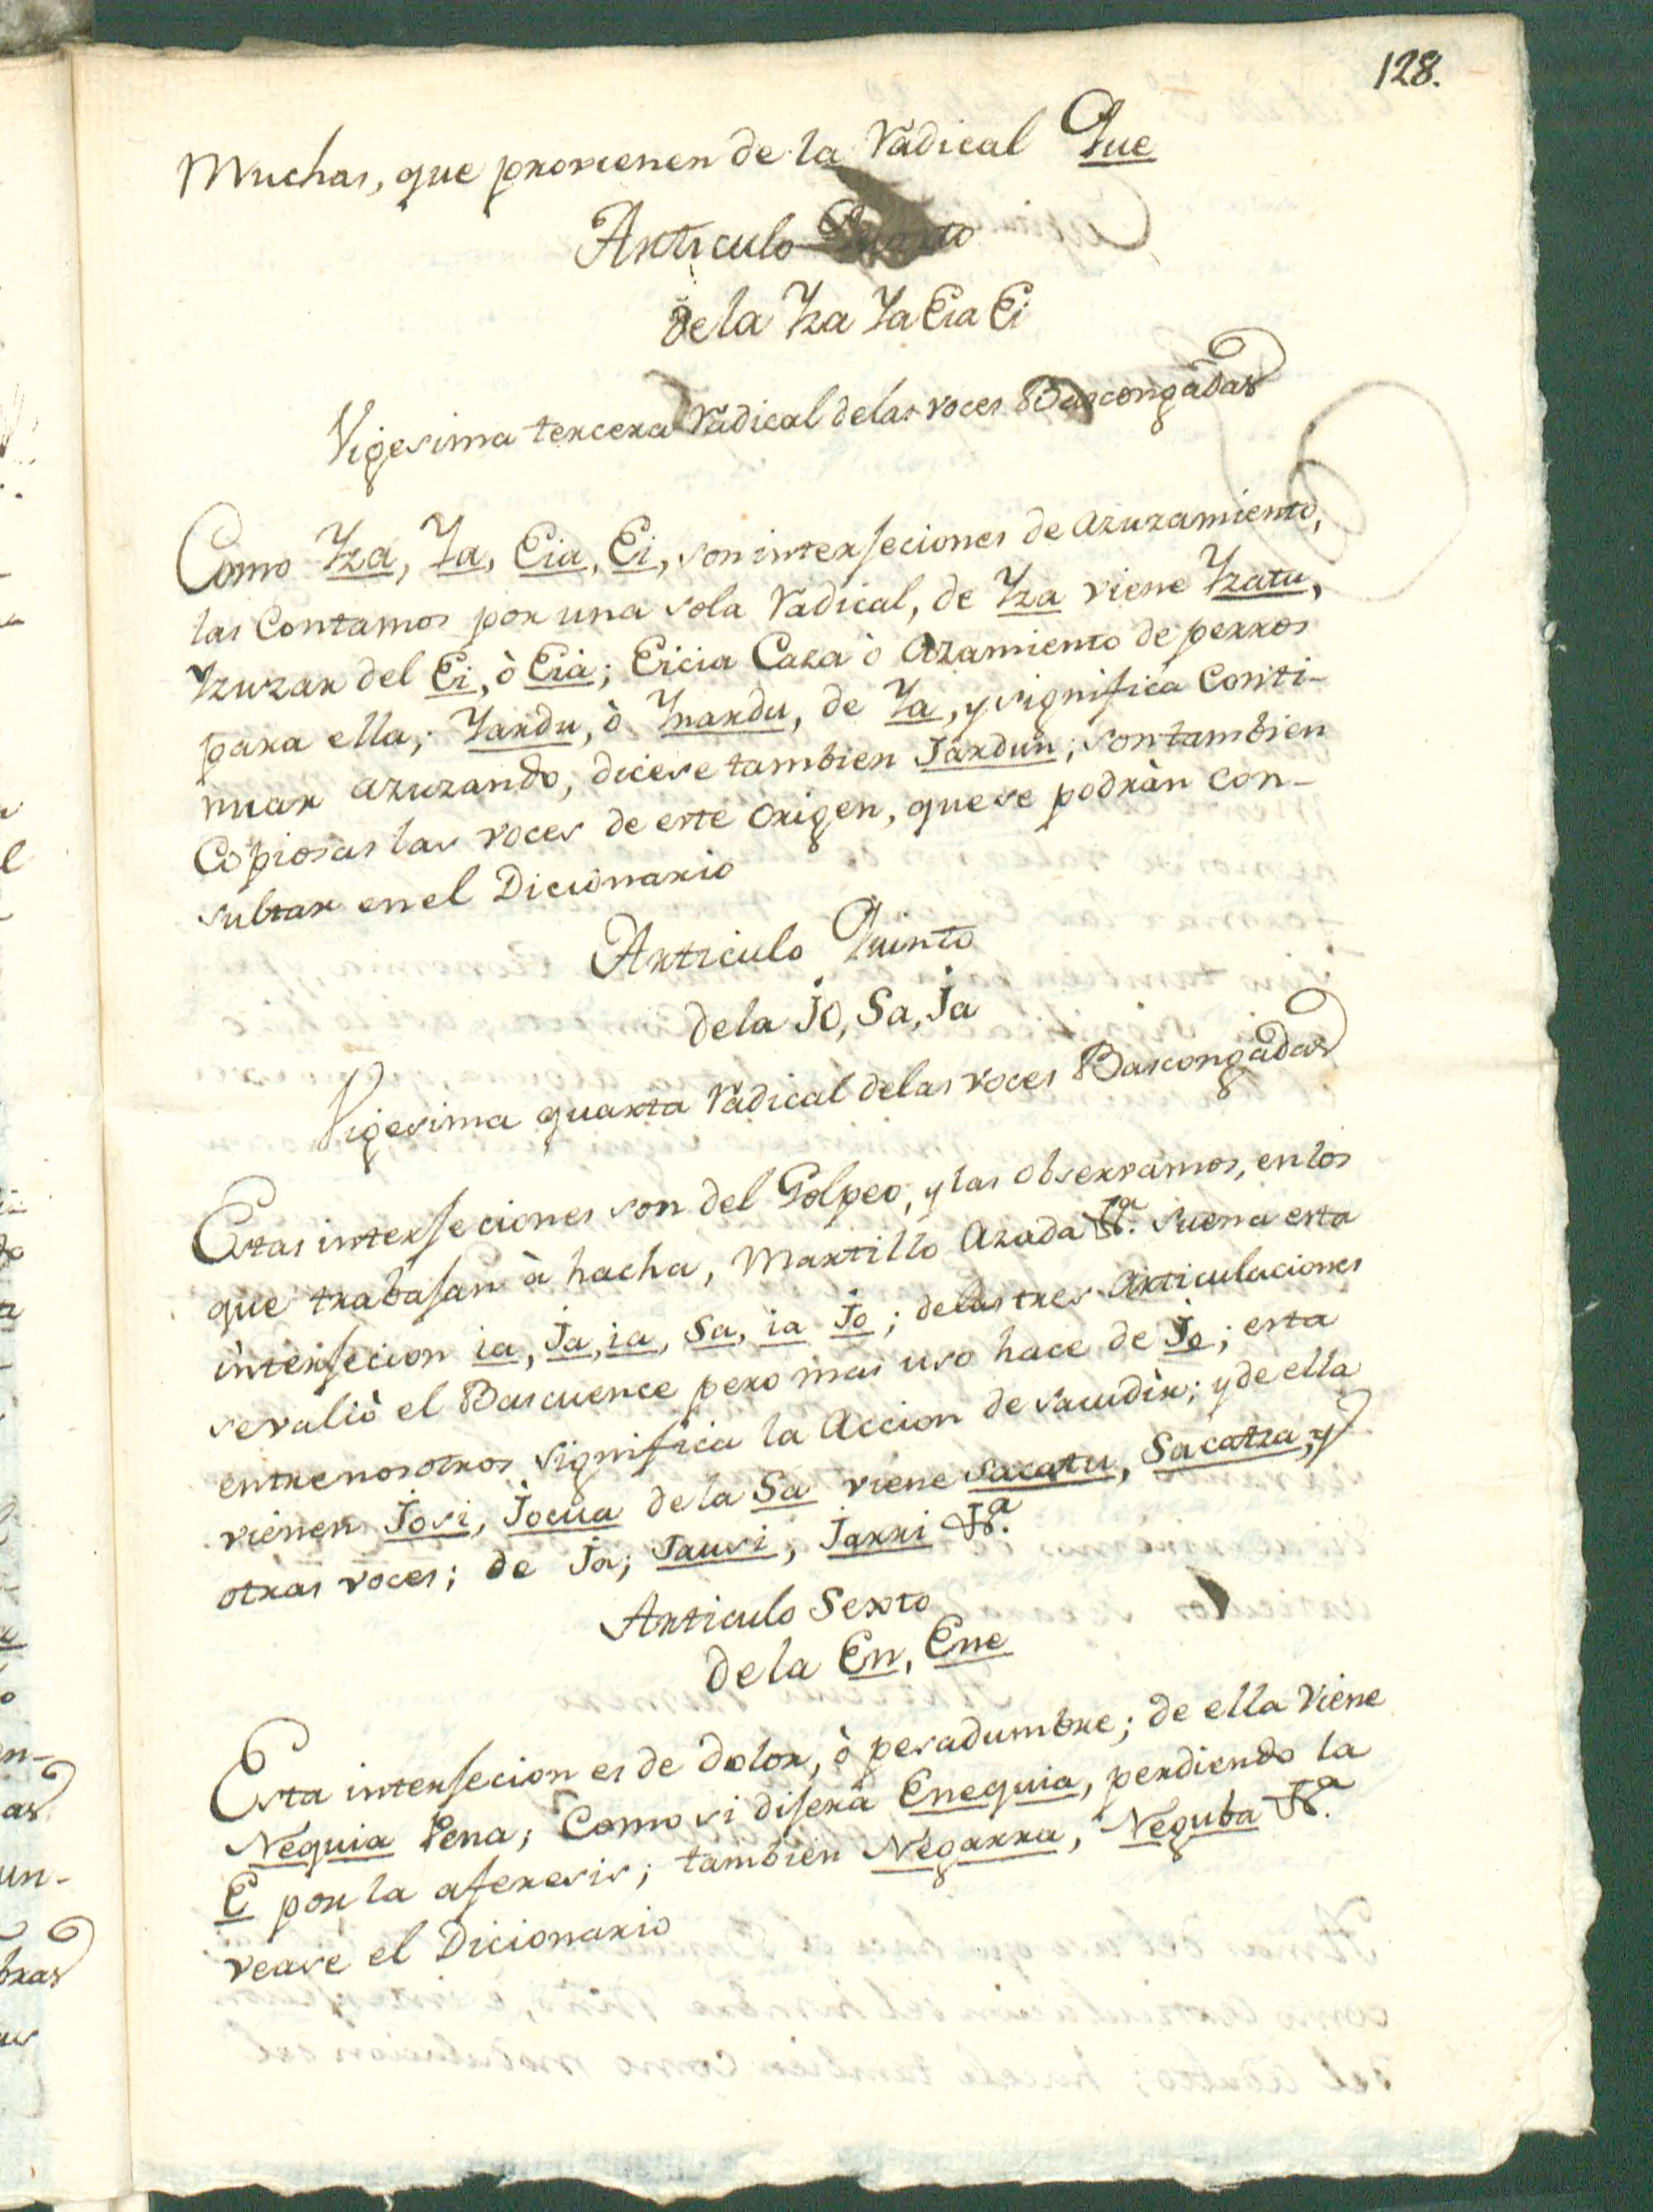 128.
Muchas, que provienen de la radical Que
Articulo Quarto
de la Yza Ya Eia Ei
Vigesima tercera radical de las voces Bascongadas
Como Yza, Ya, Eia, Ei, son interjeciones de azuzamiento,
las Contamos por una sola radical, de Yza viene Yzatu,
Yzuzar del Ei, ò Eia; Eicia Caza ò Azamiento de perros
para ella; Yardu, ò Ynardu, de Ya, y significa Conti-
nuar azuzando, dicese tambien Jardun; son tambien
Copiosas las voces de este origen, que se podràn con-
sultar en el Dicionario
Articulo Quinto
de la Jo, Sa, Ja
Vigesima quarta radical de las voces Bascongadas
Estas interjeciones son del Golpeo, y las observamos, en los
que trabajan à hacha, Martillo Azada &ª. suena esta
interjecion ia, Ja, ia, Sa, ia Jo; de las tres articulaciones
se valiò el Bascuence pero mas uso hace de Jo; esta
entre nosotros significa la Accion de sacudir; y de ella
vienen Josi, Jocua de la Sa viene sacatu, Sacatza, y
otras voces; de Ja; Jausi, Jarri &ª.
Articulo Sexto
de la En, Ene
Esta interjecion es de dolor, ò pesadumbre; de ella viene
Nequia Pena; Como si dijera Enequia, perdiendo la
E por la aferesis; tambien Negarra, Neguba &ª.
vease el Dicionario